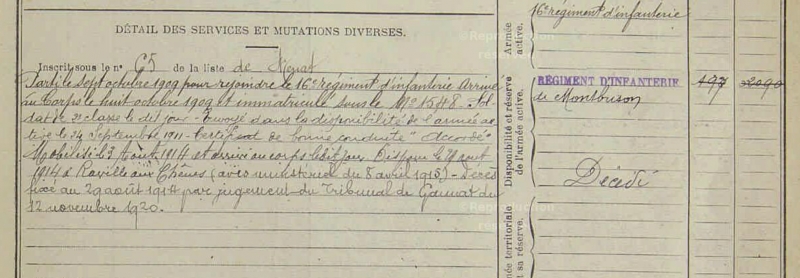 DÉTAIL DES SERVICES ET MUTATIONS DIVERSES.
Inscrit sous le n° 65 de la liste de
Parti le sept octobre 1909 pour rejoindre le 16e régiment d'infanterie Arrivé
au Corps le huit octobre 1909 et immatriculé sous le No 1548. Sol
dat de 2e classe le dit jour. Envoyé dans la disponibilité de l'armée ac
tive le 24 Septembre 1911. Certificat de bonne conduite "Accordé"
Mobilisé le 3 Août 1914 et arrivé au corps le dit jour. Disparu le 29 août
1914 à aux Chênes (avis ministériel du 8 avril 1915) - Décès
fixé au 29 août 1914 par jugement du Tribunal de Gannat du
12 novembre 1920.
Armée
active.
16e régiment d'infanterie
Disponibilité et réserve
de l'armée active.
RÉGIMENT D'INFANTERIE
de Montbrison
Décédé
ée territoriale
t sa réserve.
Reproduction